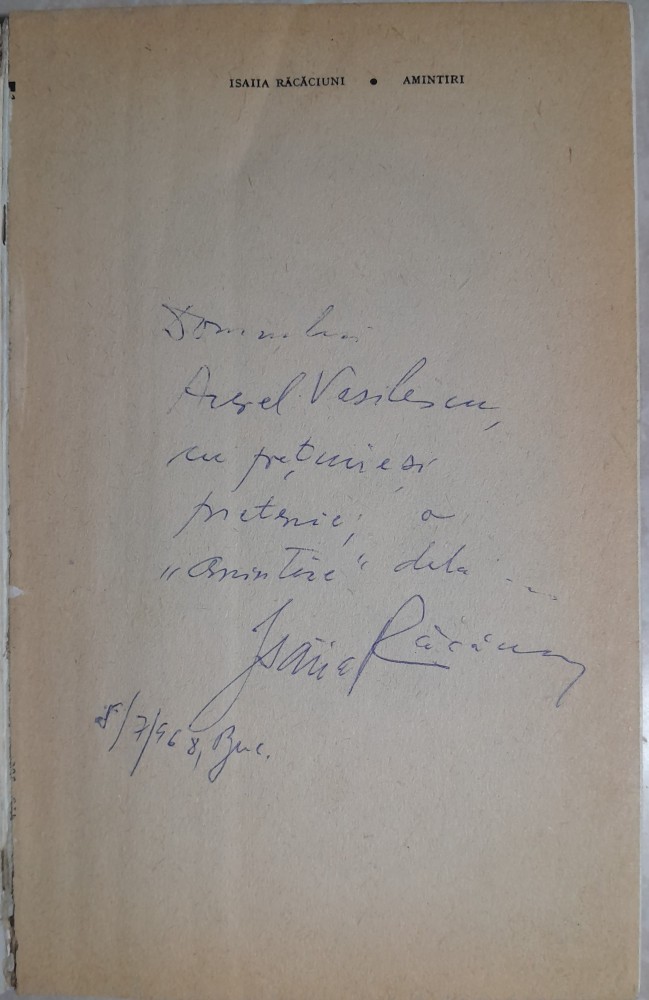 ISAIIA RĂCĂCIUNI • AMINTIRI
Domnului
Aurel Vasilescu,
cu prețuire și
prietenie, o
„amintire" dela ...
Isaiia Răcăciuni
/7/968, Buc.